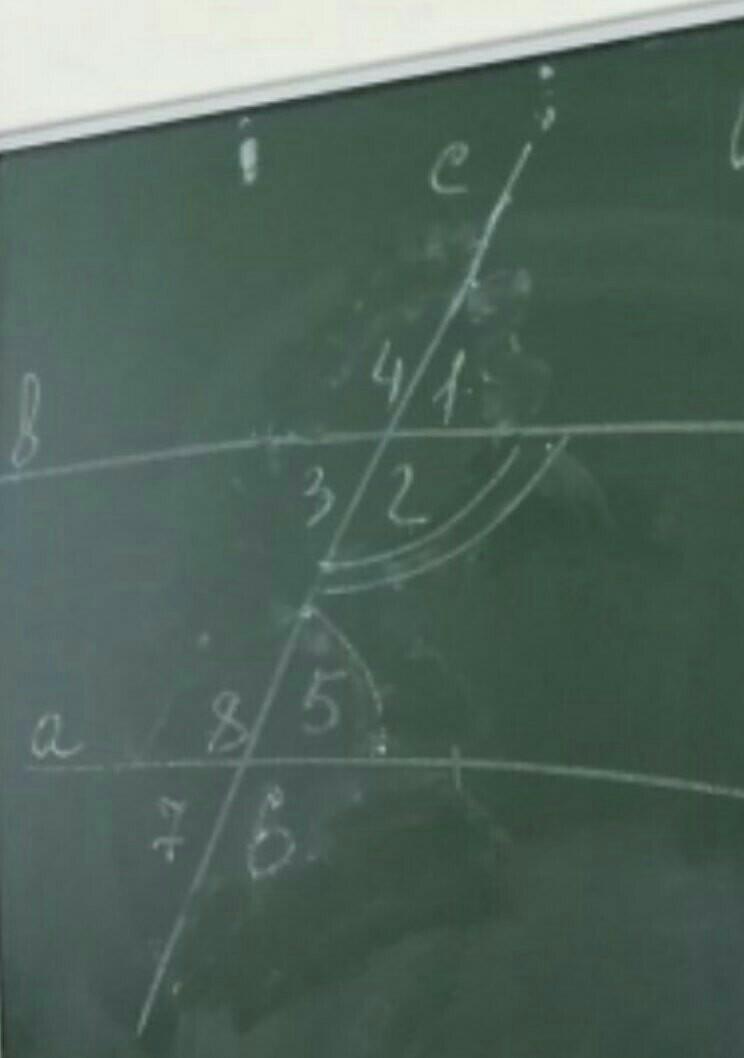 c
4 1
b
3 2
8 5
a
7 6